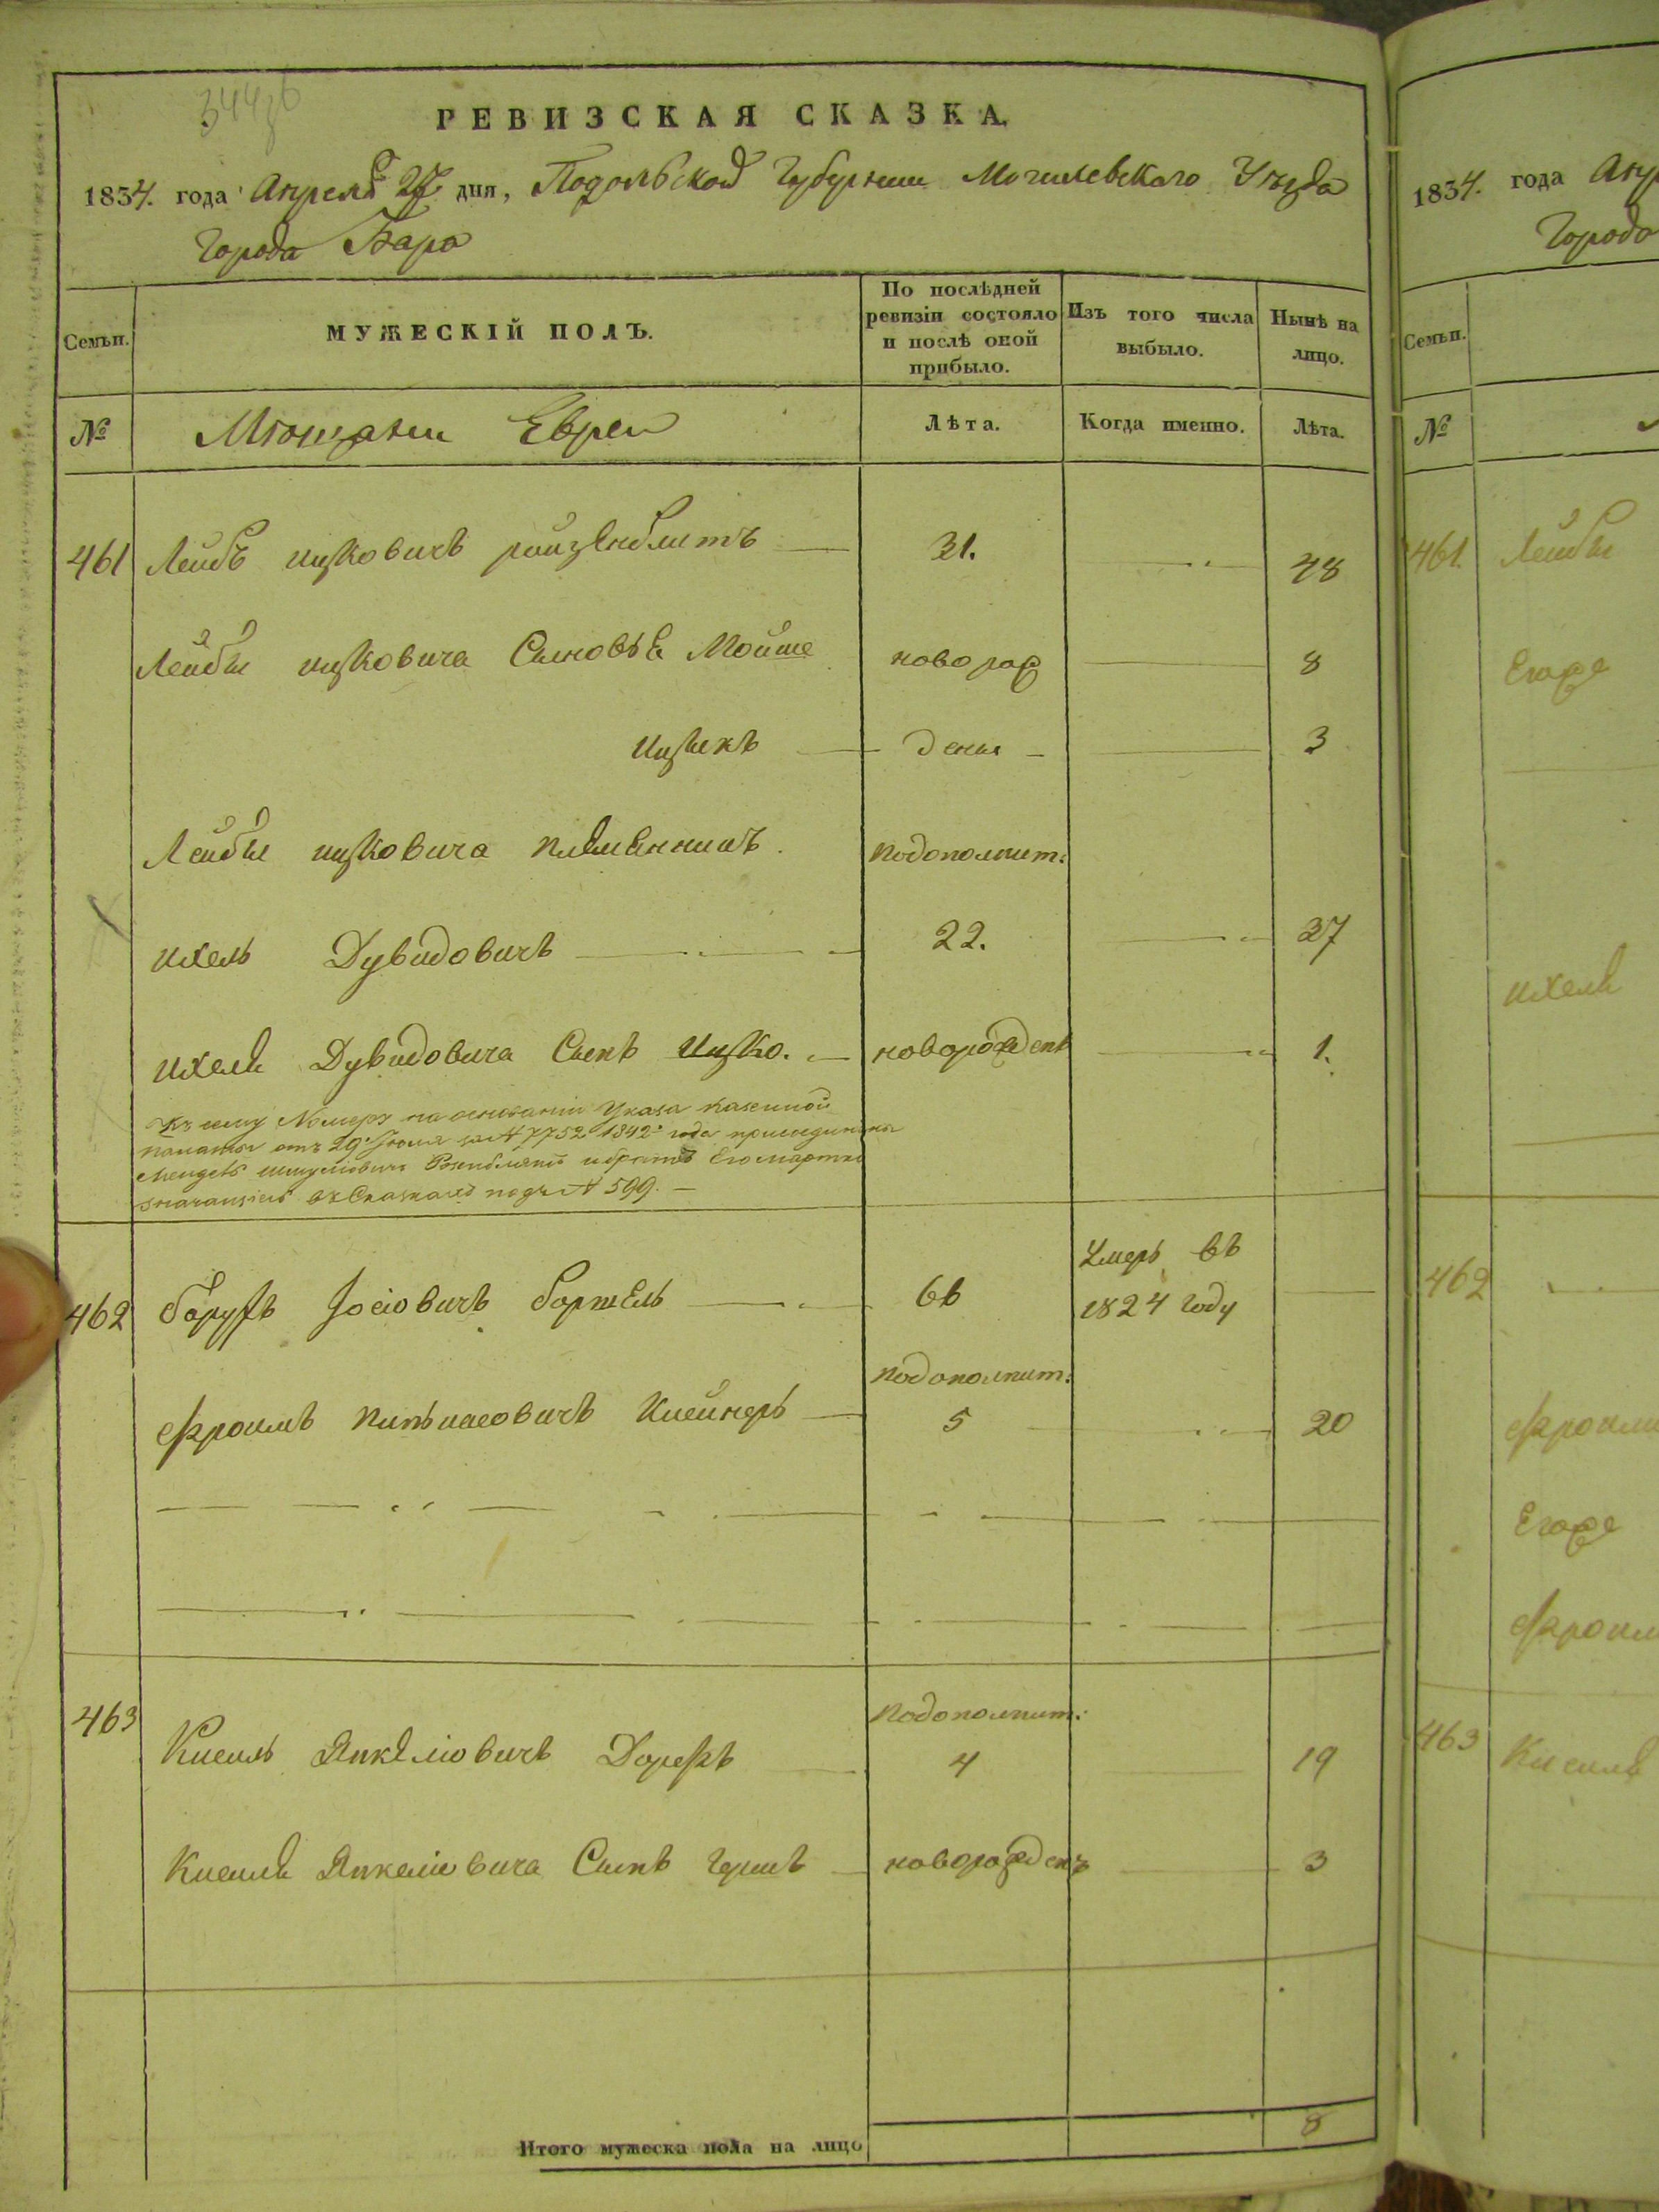 РЕВИЗСКАЯ СКАЗКА.
1834. года Апреля 27 дня, Подольской Губернии Могилевского Уезда
Города Бара
Семьи. МУЖЕСКІЙ ПОЛЪ. По послѣдней ревизіи состояло и послѣ оной прибыло. Изъ того числа выбыло. Нынѣ на лицо.
№ Мѣщане Евреи Лѣта. Когда именно. Лѣта.
461 Лейбъ Ицковичъ 31. 48
Лейбы Ицковича Сыновья Мойше новорож 8
Ицыкъ дены 3
Лейбы Ицковича племянникъ подополнит:
Ихель Дувидовичъ 22. 37
Ихеля Дувидовича Сынъ Ицко. новорожденъ 1.
Къ сему Номеру на основаніи Указа Казенной
палаты отъ 29 за № 7752 1842 года присоединены
и братъ Его
въ Сказкахъ подъ № 599.
462 Барухъ Іосіовичъ 66 Умеръ въ 1824 году
подополнит:
Фроимъ Пинькасовичъ Клейнеръ 5 20
463 подополнит:
Кисиль Янкеліовичъ Дорфъ 4 19
Кисиля Янкеліовича Сынъ Гершъ новорожденъ 3
Итого мужеска пола на лицо 8
1834. года Апр
Города
Семьи.
№
461. Лейбы
Егоже
Ихеля
462
Фроима
Егоже
Фроима
463 Кисиля